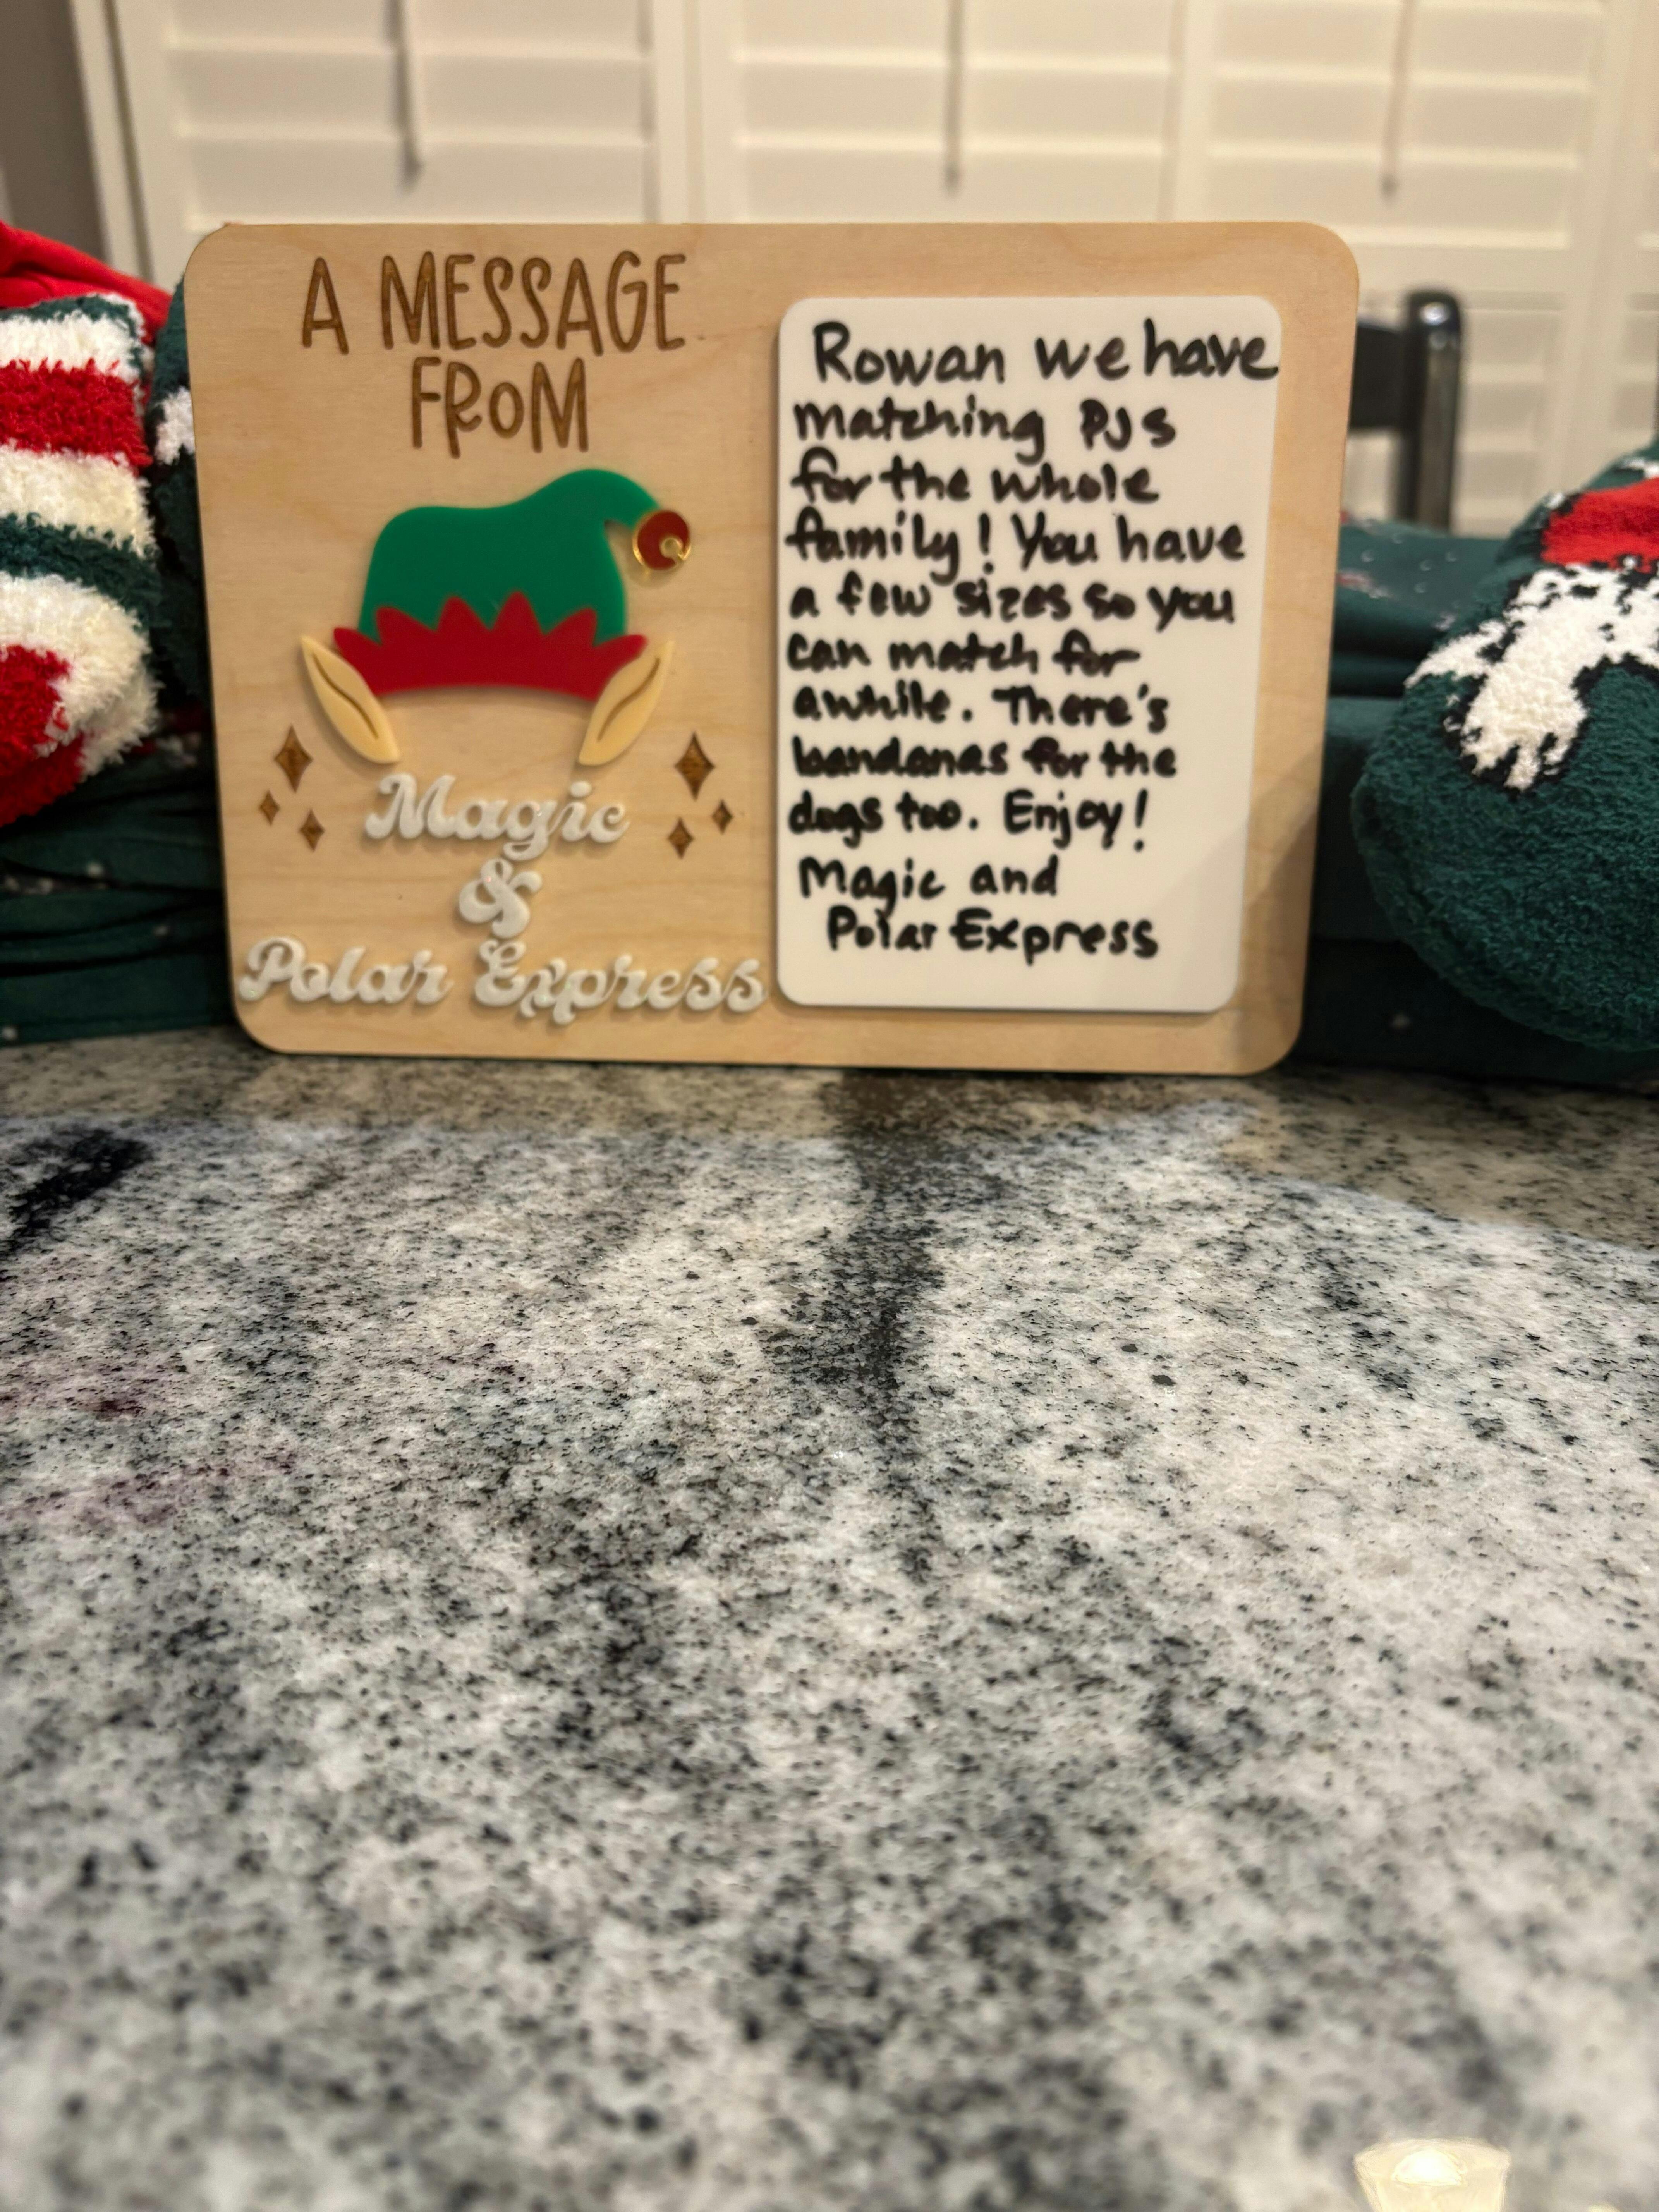 A MESSAGE
FROM
Magic
&
Polar Express
Rowan we have
matching PJs
for the whole
family! You have
a few sizes so you
can match for
awhile. There's
bandanas for the
dogs too. Enjoy!
Magic and
Polar Express